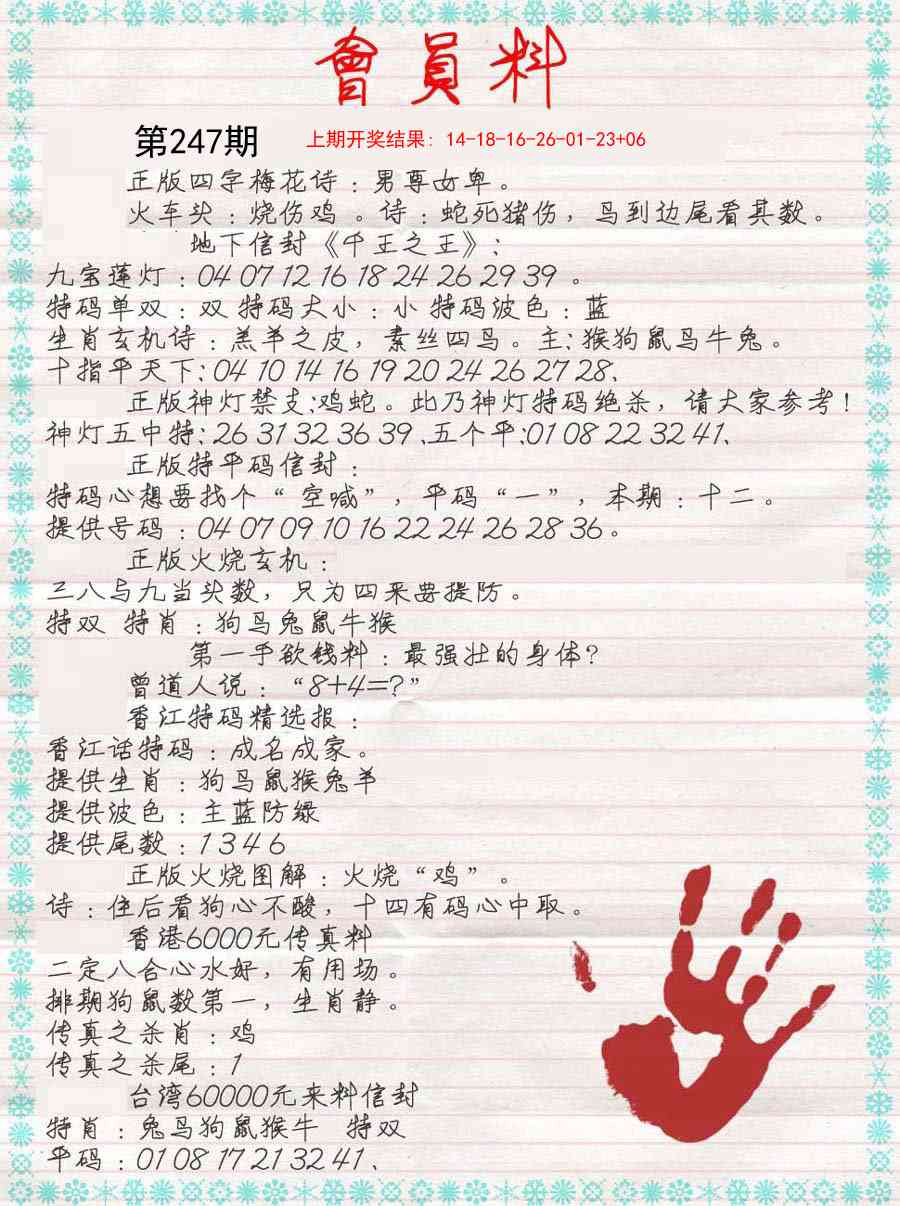 會員料
第247期 上期开奖结果：14-18-16-26-01-23+06
正版四字梅花诗：男尊女卑。
火车头：烧伤鸡。诗：蛇死猪伤，鸟到边尾看其数。
地下信封《千王之王》：
九宝莲灯：04 07 12 16 18 24 26 29 39 。
特码单双：双 特码大小：小 特码波色：蓝
生肖玄机诗：羔羊之皮，素丝四马。主：猴狗鼠马牛兔。
十指平天下：04 10 14 16 19 20 24 26 27 28、
正版神灯禁支：鸡蛇。此乃神灯特码绝杀，请大家参考！
神灯五中特：26 31 32 36 39、五个平：01 08 22 32 41、
正版特平码信封：
特码心想要找个“空喊”，平码“一”，本期：十二。
提供号码：04 07 09 10 16 22 24 26 28 36。
正版火烧玄机：
三八与九当头数，只为四来要提防。
特双 特肖：狗马兔鼠牛猴
第一手欲钱料：最强壮的身体？
曾道人说：“8+4=?”
香江特码精选报：
香江话特码：成名成家。
提供生肖：狗马鼠猴兔羊
提供波色：主蓝防绿
提供尾数：1 3 4 6
正版火烧图解：火烧“鸡”。
诗：住后看狗心不酸，十四有码心中取。
香港6000元传真料
二定八合心水好，有用场。
排期狗鼠数第一，生肖静。
传真之杀肖：鸡
传真之杀尾：1
台湾60000元来料信封
特肖：兔马狗鼠猴牛 特双
平码：01 08 17 21 32 41、